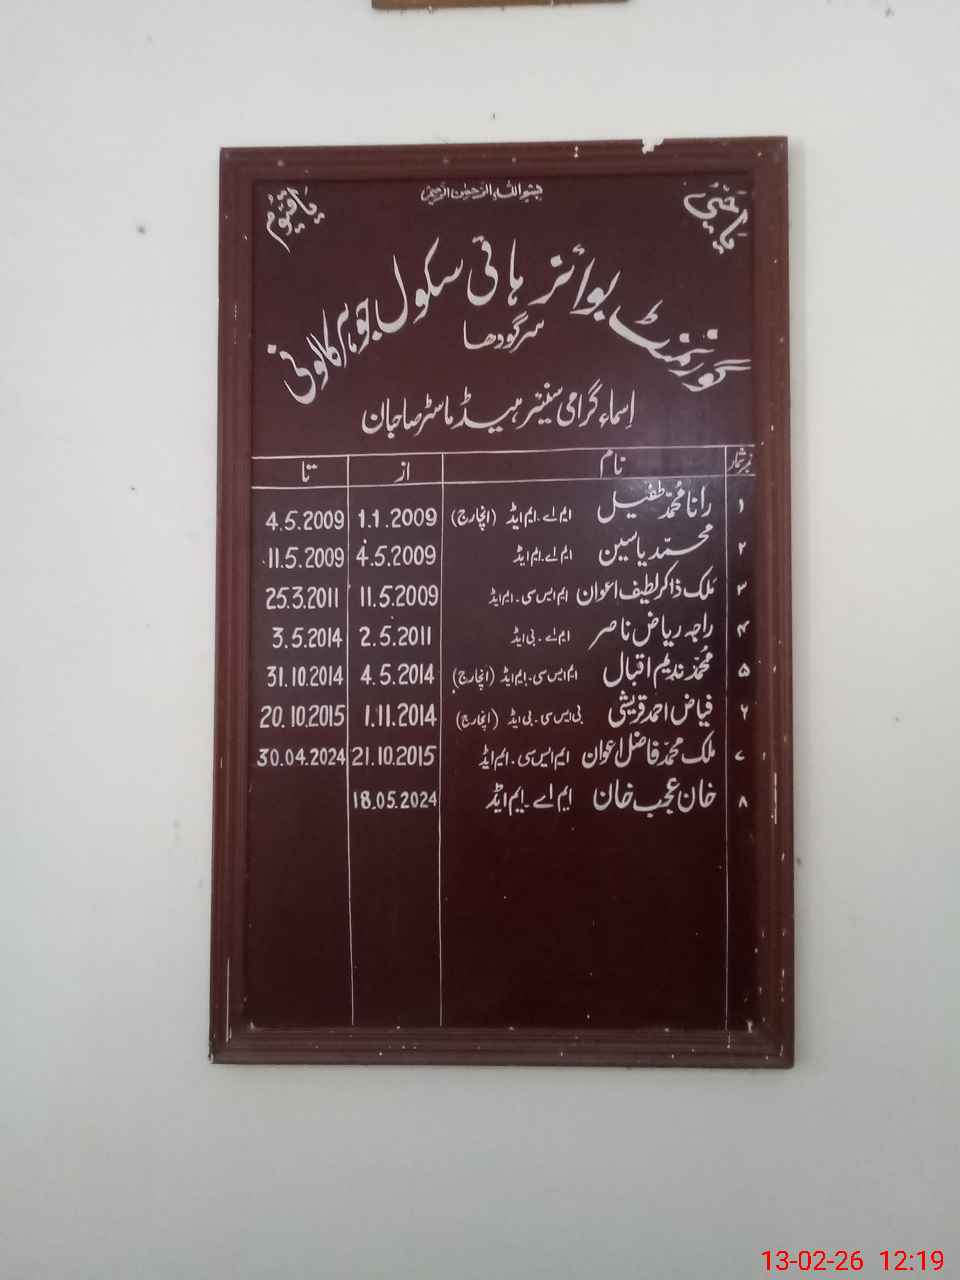 بسم اللہ الرحمٰن الرحیم
یا حَیُّ یا قیّوم
گورنمنٹ بوائز ہائی سکول جوہر کالونی
سرگودھا
اسماء گرامی سینئر ہیڈ ماسٹر صاحبان
نمبر شمار نام از تا
۱ رانا محمد طفیل ایم اے۔ایم ایڈ (انچارج) 1.1.2009 4.5.2009
۲ محمد یاسین ایم اے۔ایم ایڈ 4.5.2009 11.5.2009
۳ ملک ذاکر لطیف اعوان ایم ایس سی۔ایم ایڈ 11.5.2009 25.3.2011
۴ راجہ ریاض ناصر ایم اے۔بی ایڈ 2.5.2011 3.5.2014
۵ محمد ندیم اقبال ایم ایس سی۔ایم ایڈ (انچارج) 4.5.2014 31.10.2014
۶ فیاض احمد قریشی بی ایس سی۔بی ایڈ (انچارج) 1.11.2014 20.10.2015
۷ ملک محمد فاضل اعوان ایم ایس سی۔ایم ایڈ 21.10.2015 30.04.2024
۸ خان عجب خان ایم اے۔ایم ایڈ 18.05.2024
13-02-26 12:19